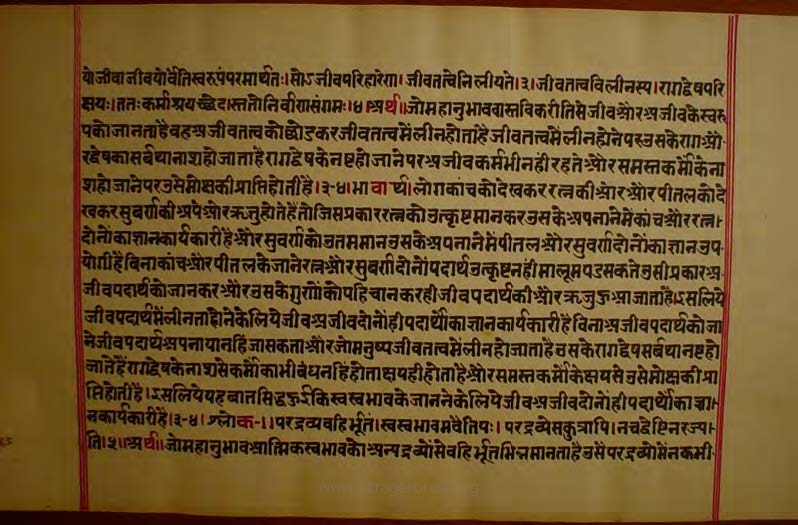 यो जीवाजीवयोर्वेतिस्वरुपंपरमार्थतः।सोऽजीवपरिहारेण। जीवतत्वेनिलीयते।३। जीवतत्वविलीनस्य।रागद्वेषपरि
क्षयः।ततःकर्माश्रयच्छेदःस्ततोनिर्वाणसंगमः।४।अर्थ॥जोमहानुभाववास्तविकरीतिसेजीवऔरअजीवकेस्वरु
पकोजानताहैवहअजीवतत्वकोछोडकरजीवतत्वमेंलीनहोताहैजीवतत्वमेंलीनहोनेपरउसकेरागऔ
रद्वेषकासर्बथानाशहोजाताहैरागद्वेषकेनष्टहोजानेपरअजीवकर्मभीनहीरहतेऔरसमस्तकर्मोकेना
शहोजानेपरउसेमोक्षकीप्राप्तिहोतीहै।३-४।भावार्थ।लोगकांचकोदेखकररत्नकीऔरऔरपीतलकोदे
खकरसुबर्णकीऔरऋजुहोतेहैंतोजिसप्रकाररत्नकोउत्कृष्टमानकरउसकेअपनानेमेंकांचऔररत्न।
दोनोंकाज्ञानकार्यकारीहैऔरसुवर्णकोउतममानउसकेअपनानेमेंपीतलऔरसुवर्णदोनोंकाज्ञानउप-
योगीहैबिनाकांचऔरपीतलकेजानेरत्नऔरसुबर्णदोनोंपदार्थउत्कृष्टनहीमालूमपडसकतेउसीप्रकारअ
जीवपदार्थकोजानकरऔरउसकेगुणोंकोपहिचानकरहीजीवपदार्थकीऔरऋजुहुआजाताहै।इसलिये
जीवपदार्थमेंलीनताहोनेकेलियेजीवअजीवदोनोंहीपदार्थोंकाज्ञानकार्यकारीहैविनाअजीवपदार्थकोजा
नेजीवपदार्थअपनायानहिंजासकताऔरजोमनुष्यजीवतत्वमेंलीनहोजाताहैउसकेरागद्वेषसर्बथानष्टहो
जातेहैंरागद्वेषकेनाशसेकर्मोकाभीबंधनहिंहोताक्षयहीहोताहैऔरसमस्तकर्मोकेक्षयसेउसेमोक्षकीप्रा
प्तिहोतीहै।इसलियेयहबातसिद्धहुईकिस्वस्वभावकेजाननेकेलियेजीवअजीवदोनोंहीपदार्थोकाज्ञा-
नकार्यकारीहै।३-४।श्लोक-।।परद्रव्यवहिर्भूतं।स्वस्वभावमवेतियः।परद्रव्येसकुत्रापि।नचद्वेष्टिनरज्य-
ति।५॥अर्थ।जोमहानुभावआत्मिकस्वभावकोअन्यद्रव्योंसेवहिर्भूतभिन्नमानताहैउसेपरद्रव्योंमेंनकभी-